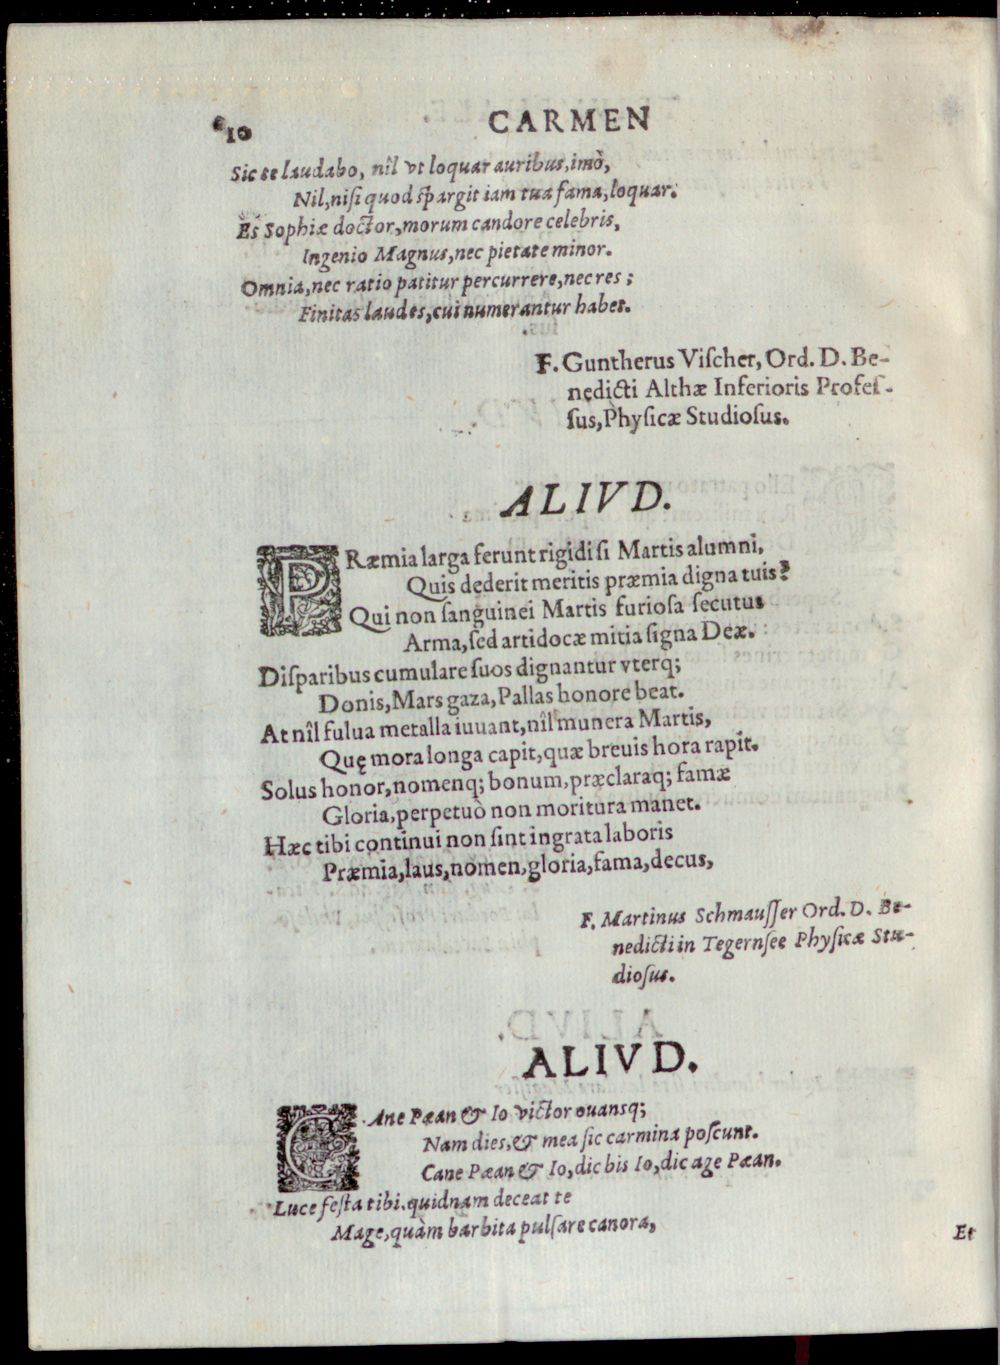 10 CARMEN
Sic te laudabo, nîl vt loquar auribus, imò,
Nil, niſi quod ſpargit iam tua fama, loquar.
Es Sophiæ doctor, morum candore celebris,
Ingenio Magnus, nec pietate minor.
Omnia, nec ratio patitur percurrere, nec res;
Finitas laudes, cui numerantur habet.
F. Guntherus Viſcher, Ord. D. Be-
nedicti Althæ Inferioris Profeſ-
ſus, Phyſicæ Studioſus.
ALIVD.
PRæmia larga ferunt rigidi ſi Martis alumni,
Quis dederit meritis præmia digna tuis?
Qui non ſanguinei Martis furioſa ſecutus
Arma, ſed artidocæ mitia ſigna Deæ.
Diſparibus cumulare ſuos dignantur vterq;
Donis, Mars gaza, Pallas honore beat.
At nîl fulua metalla iuuant, nîl munera Martis,
Quę mora longa capit, quæ breuis hora rapit.
Solus honor, nomenq; bonum, præclaraq; famæ
Gloria, perpetuò non moritura manet.
Hæc tibi continui non ſint ingrata laboris
Præmia, laus, nomen, gloria, fama, decus,
F. Martinus Schmauſſer Ord. D. Be-
nedicti in Tegernſee Phyſicæ Stu-
dioſus.
ALIVD.
CAne Pæan & Io victor ouansq;
Nam dies, & mea ſic carmina poſcunt.
Cane Pæan & Io, dic bis Io, dic age Pæan.
Luce feſta tibi. quidnam deceat te
Mage, quàm barbita pulſare canora,
Et